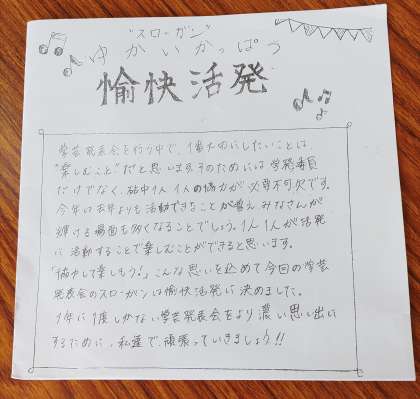 "スローガン"
ゆかいかっぱつ
愉快活発
学芸発表会を行う中で、1番大切にしたいことは、
"楽しむこと"だと思います。そのためには学発委員
だけでなく、砧中1人1人の協力が必要不可欠です。
今年は去年よりも活動できることが増え、みなさんが
輝ける場面も多くなることでしょう。1人1人が活発
に活動することで楽しむことができると思います。
「協力して楽しもう!」こんな思いを込めて今回の学芸
発表会のスローガンは愉快活発に決めました。
1年に1度しかない学芸発表会をより濃い思い出に
するために、私達で、頑張っていきましょう!!